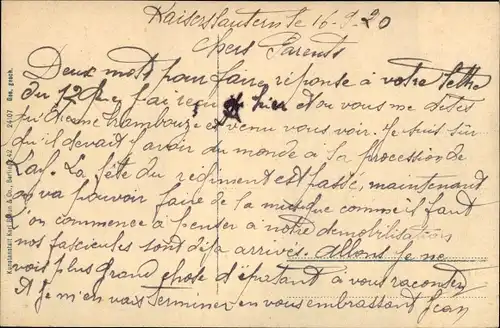 Kaiserslautern le 16-9-20
Chers Parents
Deux mots pour faire réponse à votre lettre
du 12 que j'ai reçu hier et ou vous me dites
qu'Etienne est venu vous voir. Je suis sûr
qu'il devait y avoir du monde à la procession de
La fête du régiment est passé, maintenant
on va pouvoir faire de la musique comme il faut
l'on commence à penser a notre demobilisation
nos fascicules sont déja arrivés. Allons je ne
vois plus grand chose d'épatant à vous raconter
et je m'en vais terminer en vous embrassant Jean
Kunstanstalt Karl & Co., Berlin 42 2407 Ges. gesch.